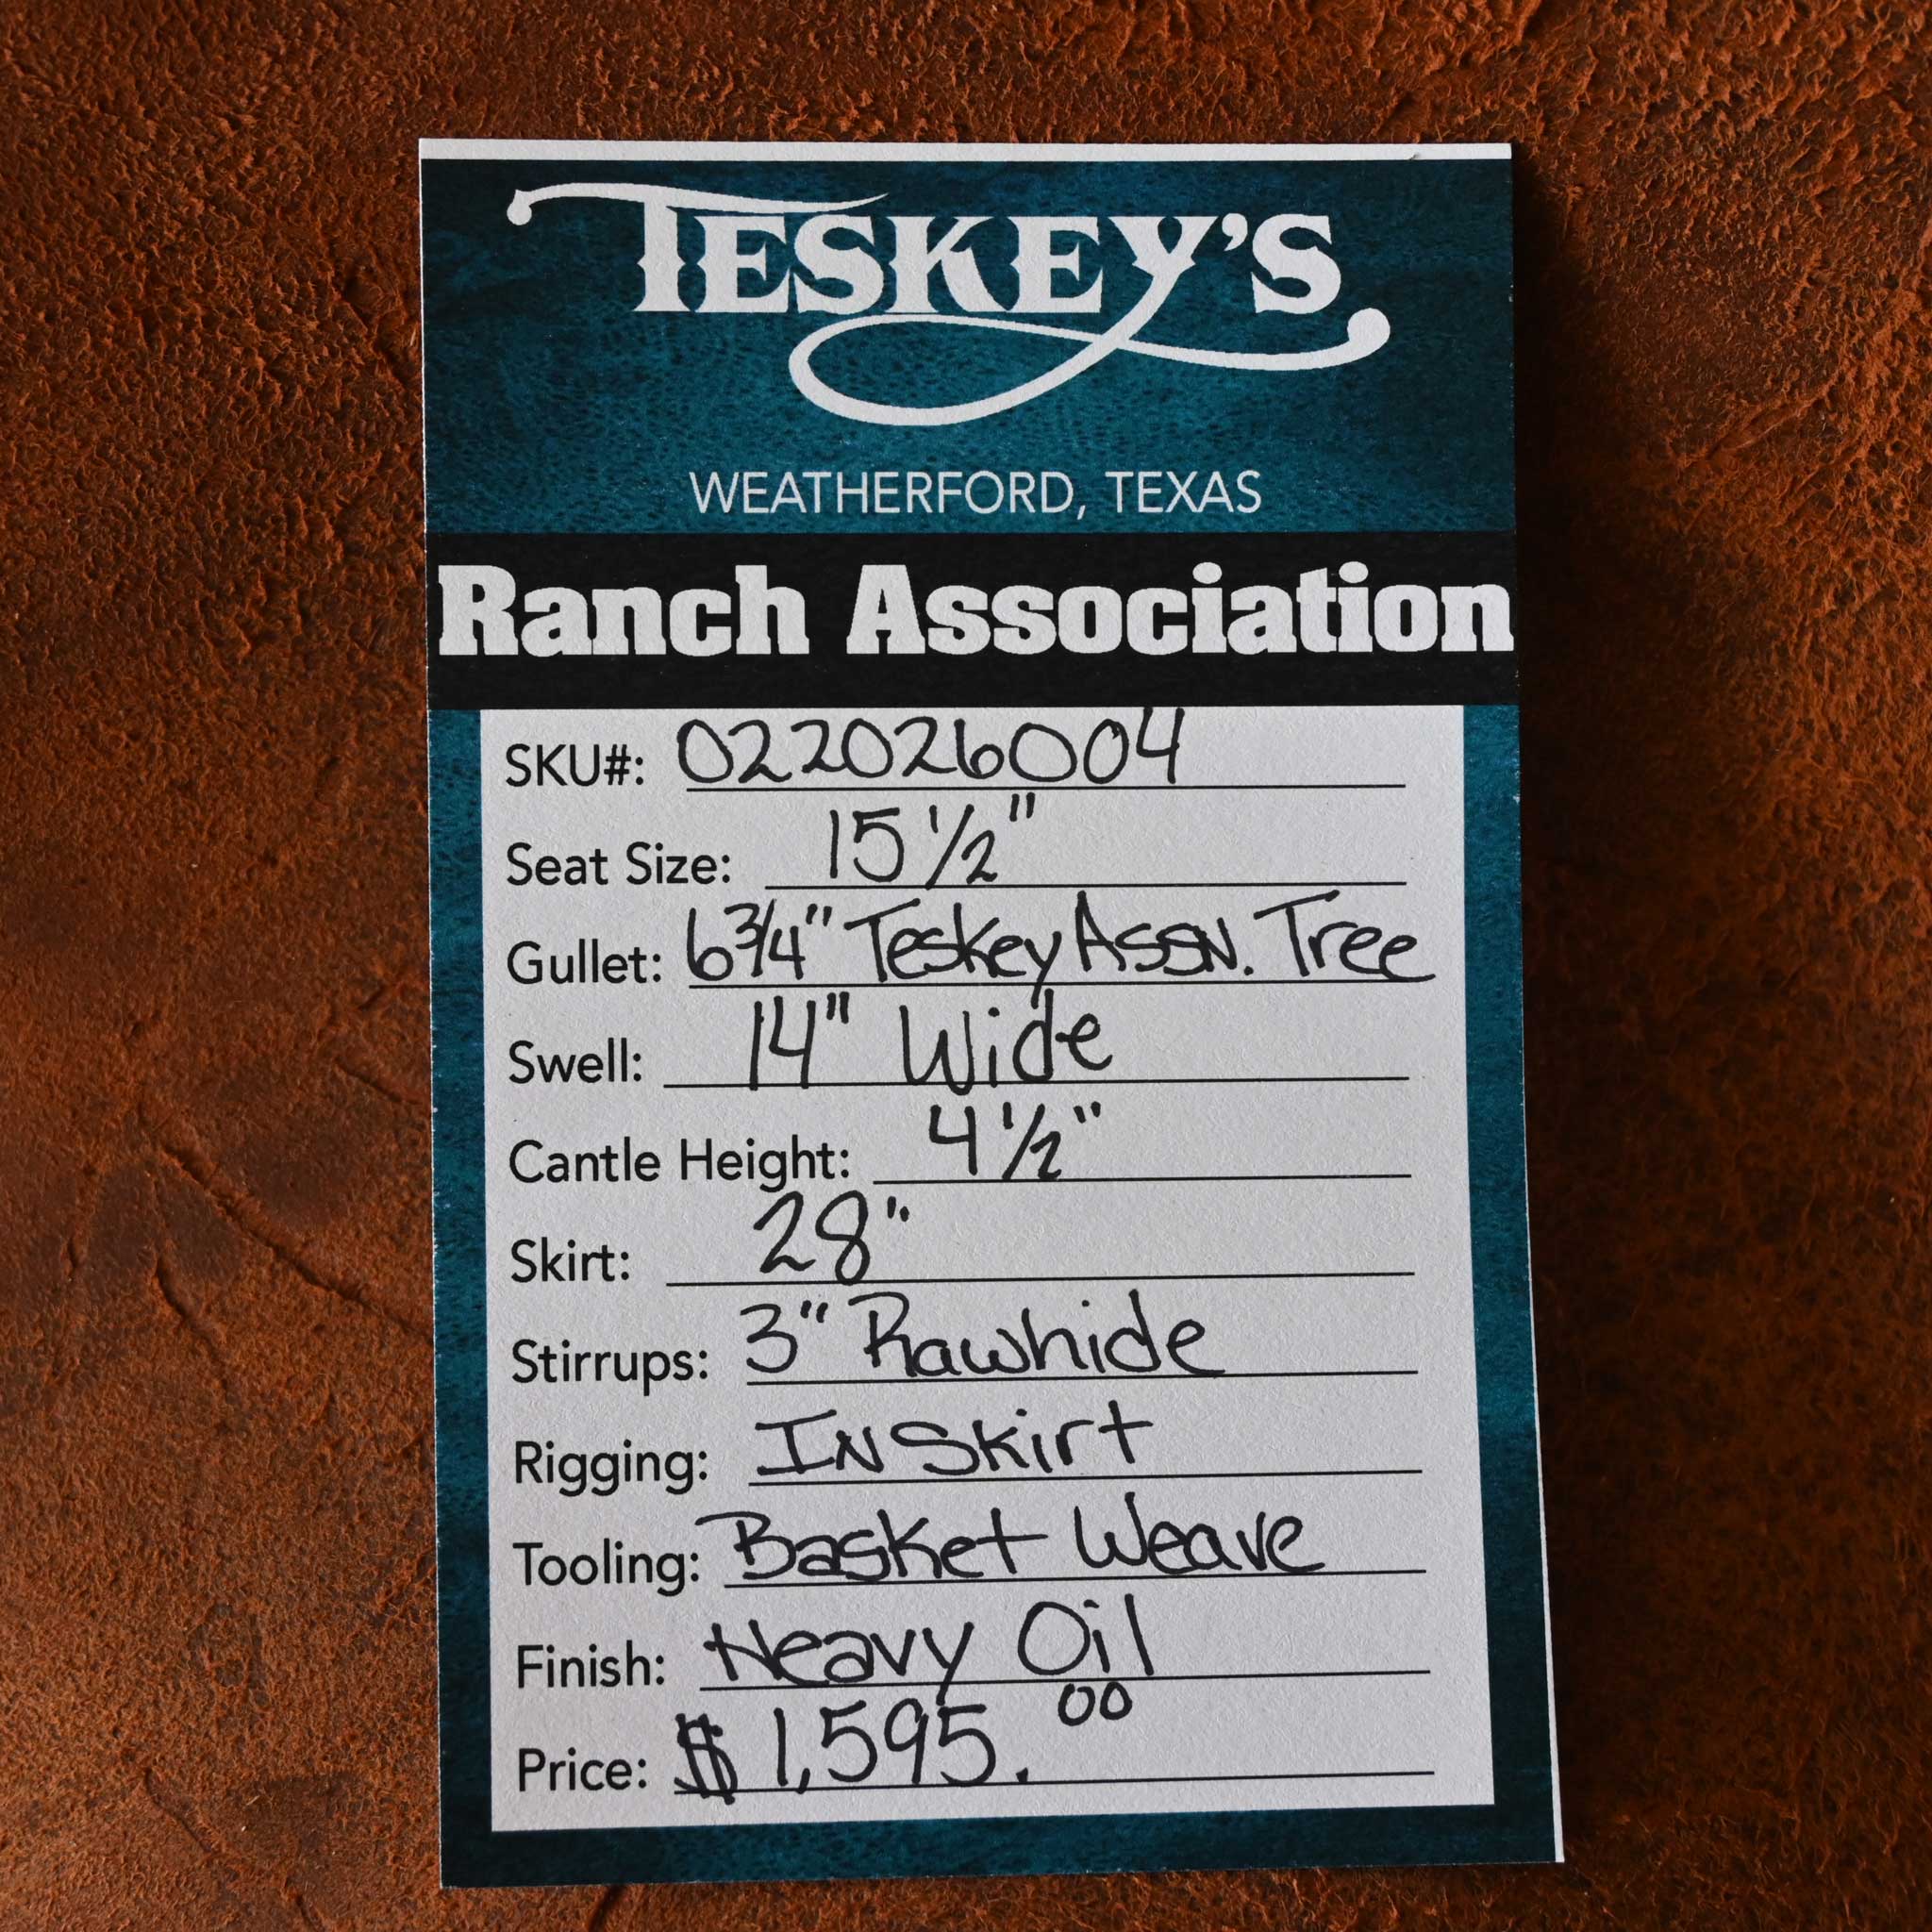 TESKEY'S
WEATHERFORD, TEXAS
Ranch Association
SKU#: 022026004
Seat Size: 15 1/2"
Gullet: 6 3/4" Teskey Assn. Tree
Swell: 14" Wide
Cantle Height: 4 1/2"
Skirt: 28"
Stirrups: 3" Rawhide
Rigging: In Skirt
Tooling: Basket Weave
Finish: Heavy Oil
Price: $1,595.00